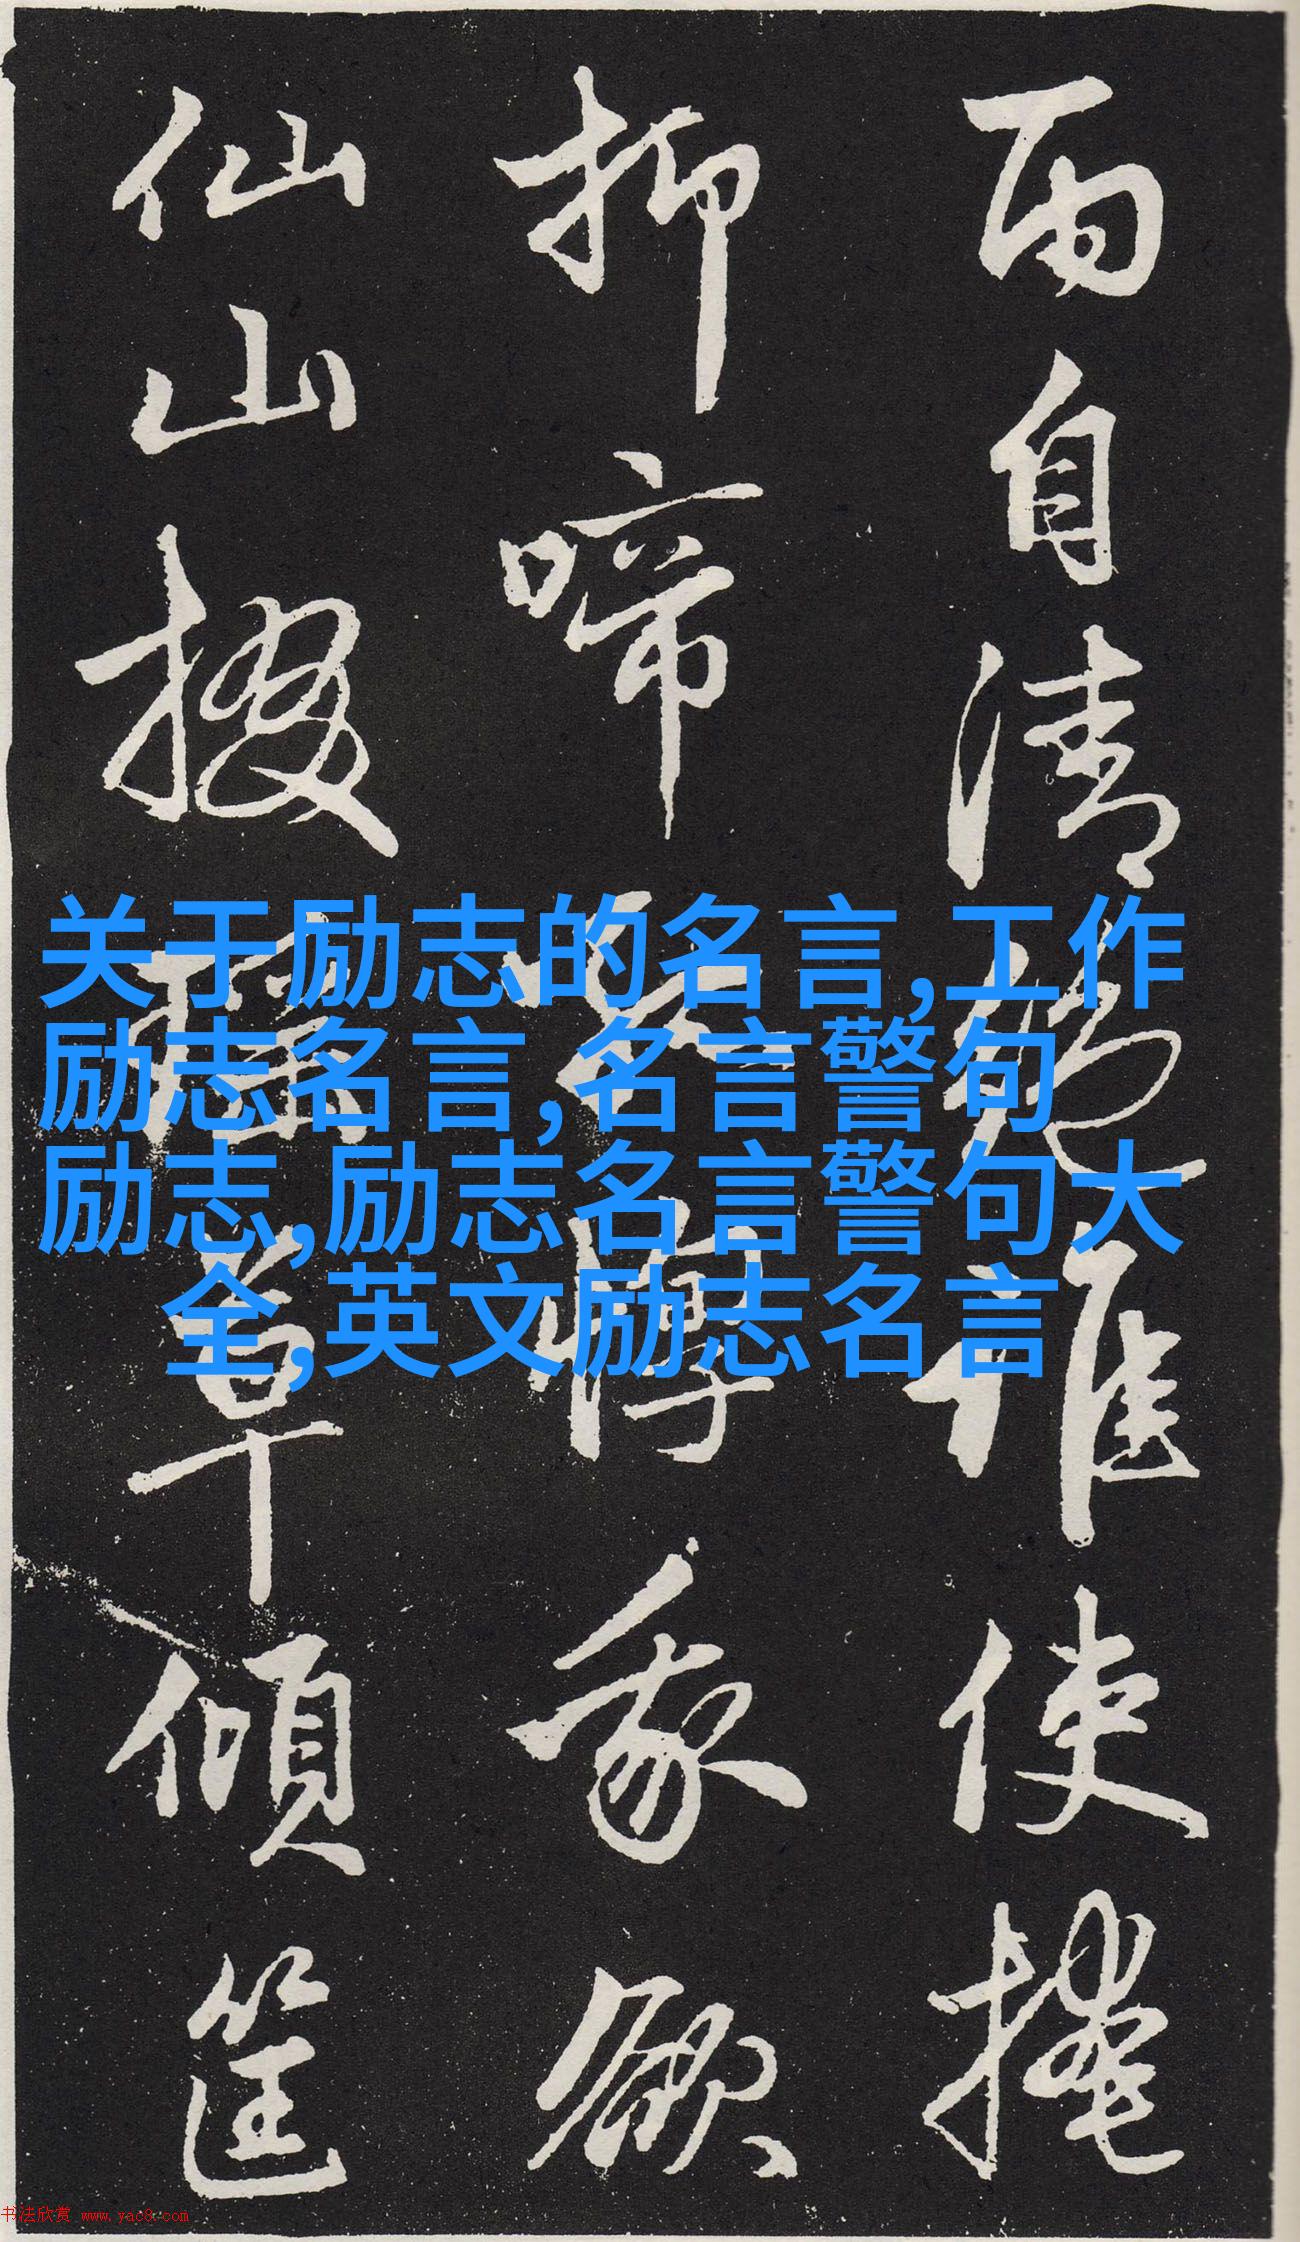 雨自清絶誰使掩
抑啼孤惸我欲
仙山掇瑶草傾筐
关于励志的名言,工作
励志名言,名言警句
励志,励志名言警句大
全,英文励志名言
书法欣赏 www.yac8.com